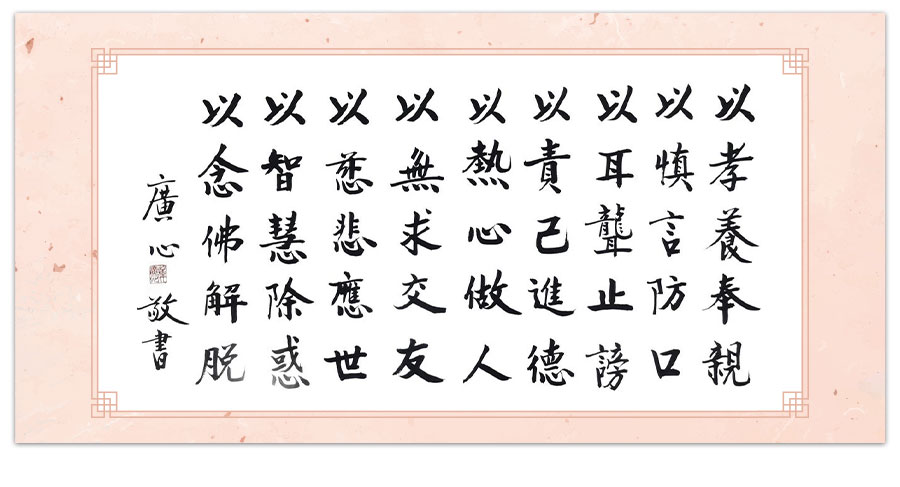 以孝養奉親
以慎言防口
以耳聾止謗
以責己進德
以熱心做人
以無求交友
以慈悲應世
以智慧除惑
以念佛解脫
廣心敬書